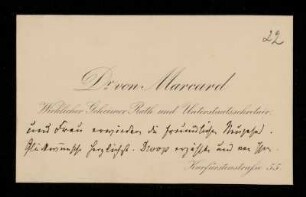 22
Dr von Marcard
Wirklicher Geheimer Rath und Unterstaatssekretair.
und Frau erwiedern die freundlichen
herzlichst. erzählte uns von
Kurfürstenstraße 55.